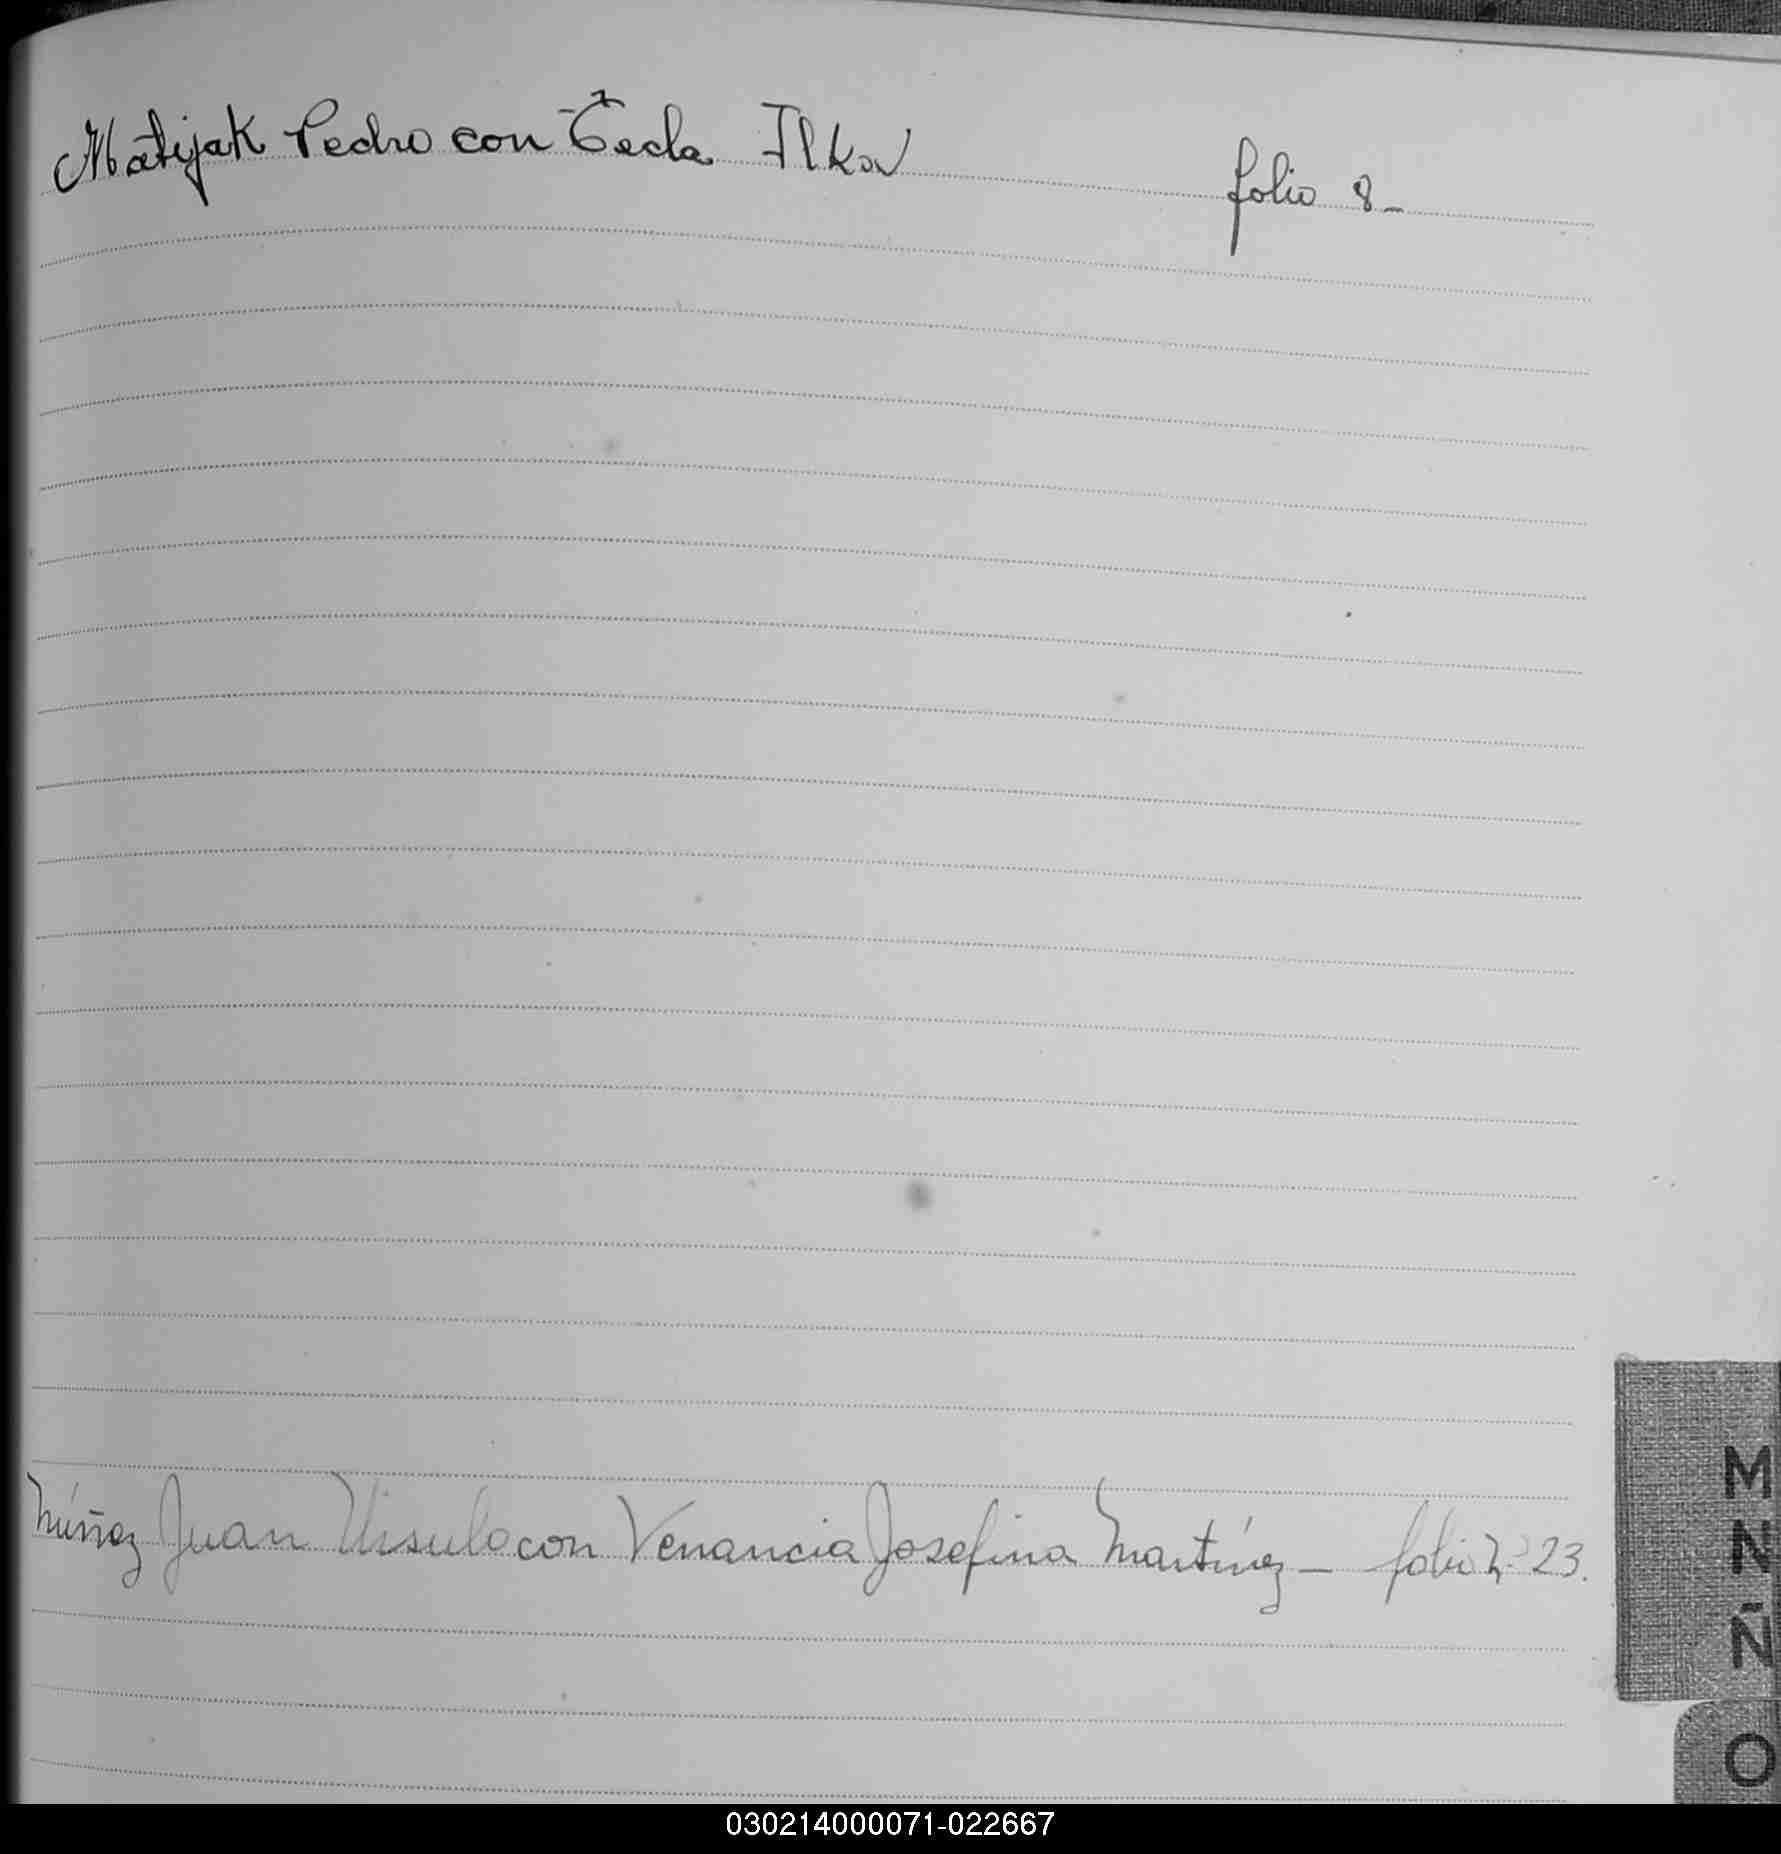 Matijak Pedro con Tecla Ilkov folio 8_
Núñez Juan Ursulo con Venancia Josefina Martínez — folio Nº 23.
M
N
Ñ
O
030214000071-022667